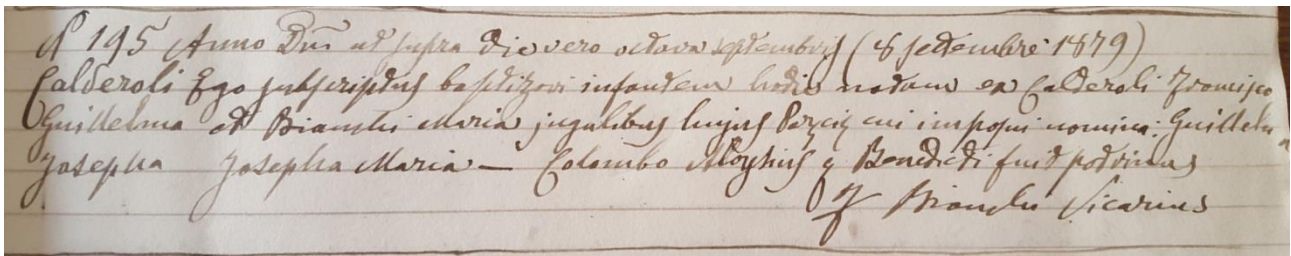 N 195 Anno Dni ut supra die vero octava septembris (8 settembre 1879)
Calderoli Ego subscriptus baptizavi infantem hodie natam ex Calderoli Francisco
Guillelma et Bianchi Maria jugalibus hujus Parciæ cui imposui nomina: Guillelma
Josepha Josepha Maria — Colombo Aloysius q Benedicti fuit patrinus
Bianchi Vicarius